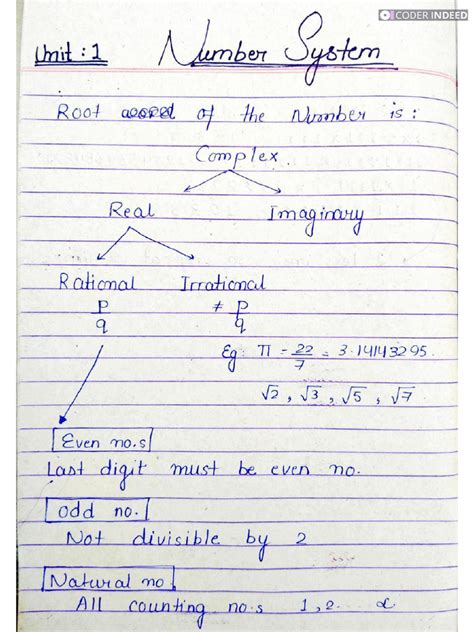 CODER INDEED
Unit : 1 Number System
Root of the Number is :
Complex
Real Imaginary
Rational Irrational
p/q ≠ p/q
Eg: π = 22/7 = 3.14143295.
√2 , √3 , √5 , √7
Even no.s
Last digit must be even no.
Odd no.
Not divisible by 2
Natural no
All counting no.s 1, 2.. ∝